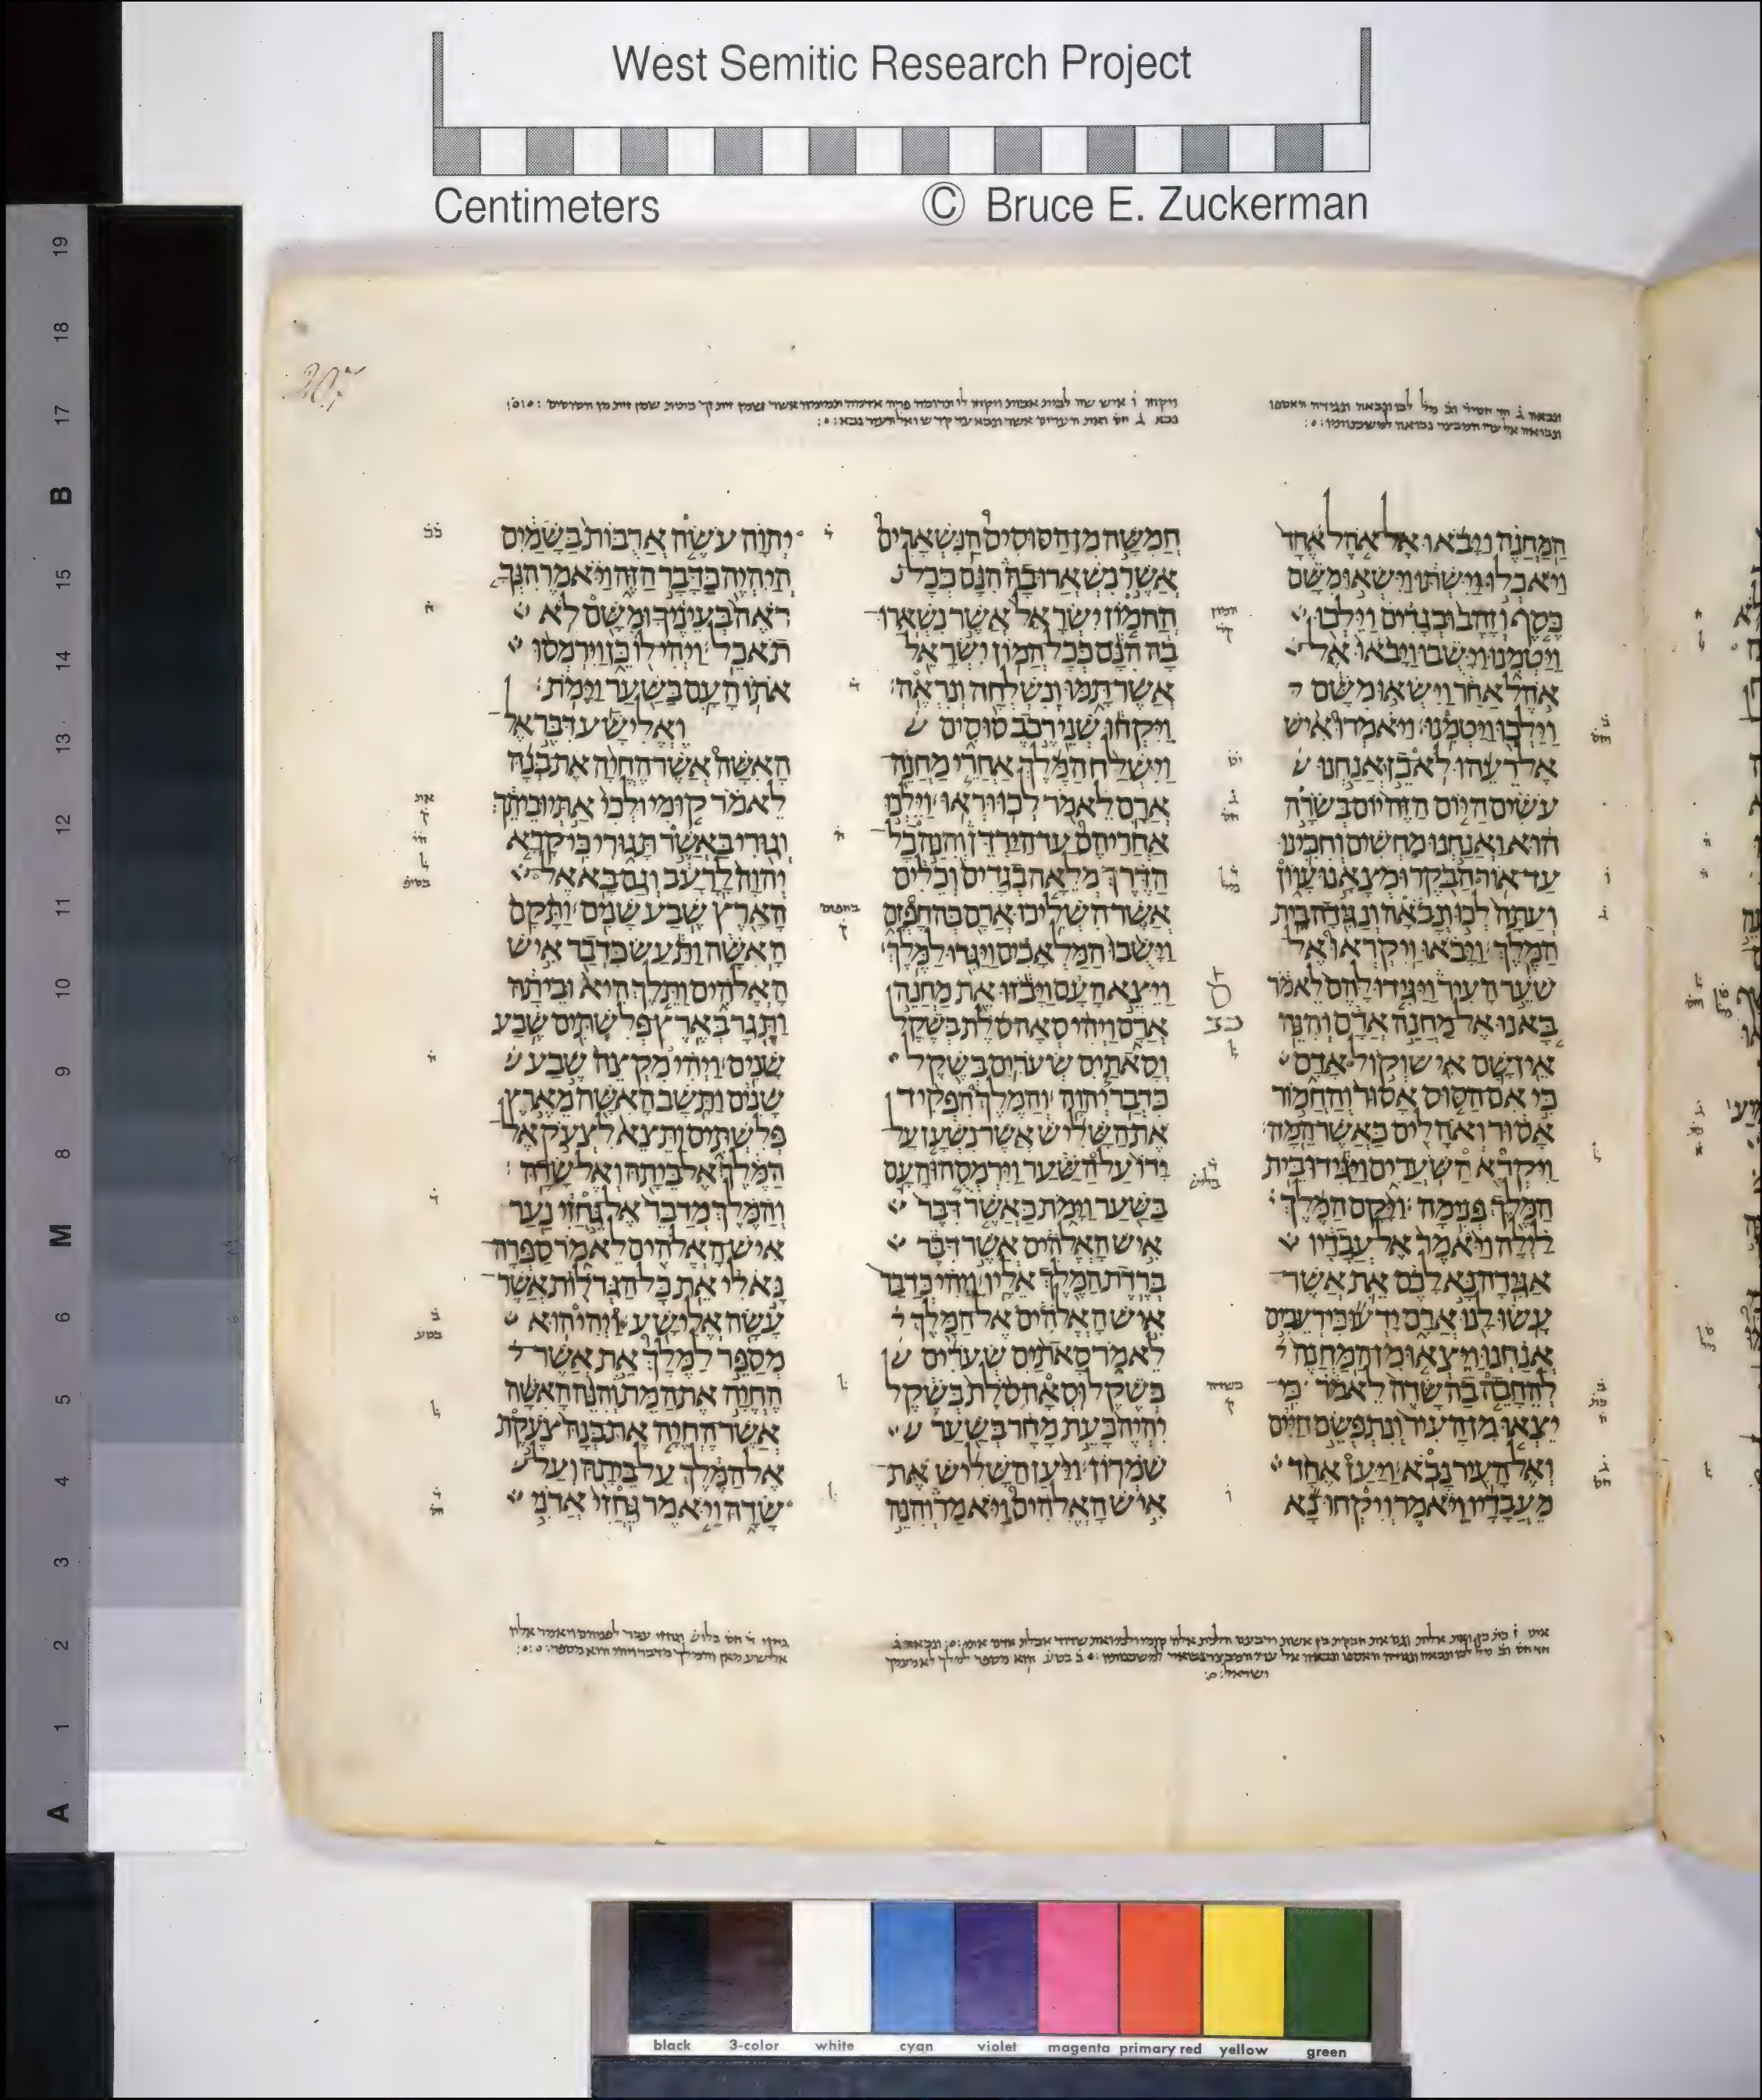 West Semitic Research Project
Centimeters © Bruce E. Zuckerman
207
הַמַּחֲנֶה וַיָּבֹאוּ אֶל אֹהֶל אֶחָד
וַיֹּאכְלוּ וַיִּשְׁתּוּ וַיִּשְׂאוּ מִשָּׁם
כֶּסֶף וְזָהָב וּבְגָדִים וַיֵּלְכוּ
וַיַּטְמִנוּ וַיָּשֻׁבוּ וַיָּבֹאוּ אֶל
אֹהֶל אַחֵר וַיִּשְׂאוּ מִשָּׁם
וַיֵּלְכוּ וַיַּטְמִנוּ׃ וַיֹּאמְרוּ אִישׁ
אֶל רֵעֵהוּ לֹא כֵן אֲנַחְנוּ
עֹשִׂים הַיּוֹם הַזֶּה יוֹם בְּשֹׂרָה
הוּא וַאֲנַחְנוּ מַחְשִׁים וְחִכִּינוּ
עַד אוֹר הַבֹּקֶר וּמְצָאָנוּ עָווֹן
וְעַתָּה לְכוּ וְנָבֹאָה וְנַגִּידָה בֵּית
הַמֶּלֶךְ׃ וַיָּבֹאוּ וַיִּקְרְאוּ אֶל
שֹׁעֵר הָעִיר וַיַּגִּידוּ לָהֶם לֵאמֹר
בָּאנוּ אֶל מַחֲנֵה אֲרָם וְהִנֵּה
אֵין שָׁם אִישׁ וְקוֹל אָדָם
כִּי אִם הַסּוּס אָסוּר וְהַחֲמוֹר
אָסוּר וְאֹהָלִים כַּאֲשֶׁר הֵמָּה׃
וַיִּקְרָא הַשֹּׁעֲרִים וַיַּגִּידוּ בֵּית
הַמֶּלֶךְ פְּנִימָה׃ וַיָּקָם הַמֶּלֶךְ
לַיְלָה וַיֹּאמֶר אֶל עֲבָדָיו
אַגִּידָה נָּא לָכֶם אֵת אֲשֶׁר
עָשׂוּ לָנוּ אֲרָם יָדְעוּ כִּי רְעֵבִים
אֲנַחְנוּ וַיֵּצְאוּ מִן הַמַּחֲנֶה
לְהֵחָבֵה בְהַשָּׂדֶה לֵאמֹר כִּי
יֵצְאוּ מִן הָעִיר וְנִתְפְּשֵׂם חַיִּים
וְאֶל הָעִיר נָבֹא׃ וַיַּעַן אֶחָד
מֵעֲבָדָיו וַיֹּאמֶר וְיִקְחוּ נָא
חֲמִשָּׁה מִן הַסּוּסִים הַנִּשְׁאָרִים
אֲשֶׁר נִשְׁאֲרוּ בָהּ הִנָּם כְּכָל
הַהֲמוֹן יִשְׂרָאֵל אֲשֶׁר נִשְׁאֲרוּ
בָהּ הִנָּם כְּכָל הֲמוֹן יִשְׂרָאֵל
אֲשֶׁר תָּמּוּ וְנִשְׁלְחָה וְנִרְאֶה׃
וַיִּקְחוּ שְׁנֵי רֶכֶב סוּסִים
וַיִּשְׁלַח הַמֶּלֶךְ אַחֲרֵי מַחֲנֵה
אֲרָם לֵאמֹר לְכוּ וּרְאוּ׃ וַיֵּלְכוּ
אַחֲרֵיהֶם עַד הַיַּרְדֵּן וְהִנֵּה כָל
הַדֶּרֶךְ מְלֵאָה בְגָדִים וְכֵלִים
אֲשֶׁר הִשְׁלִיכוּ אֲרָם בְּהֵחָפְזָם
וַיָּשֻׁבוּ הַמַּלְאָכִים וַיַּגִּדוּ לַמֶּלֶךְ׃
וַיֵּצֵא הָעָם וַיָּבֹזּוּ אֵת מַחֲנֵה
אֲרָם וַיְהִי סְאָה סֹלֶת בְּשֶׁקֶל
וְסָאתַיִם שְׂעֹרִים בְּשֶׁקֶל
כִּדְבַר יְהוָה׃ וְהַמֶּלֶךְ הִפְקִיד
אֶת הַשָּׁלִישׁ אֲשֶׁר נִשְׁעָן עַל
יָדוֹ עַל הַשַּׁעַר וַיִּרְמְסֻהוּ הָעָם
בַּשַּׁעַר וַיָּמֹת כַּאֲשֶׁר דִּבֶּר
אִישׁ הָאֱלֹהִים אֲשֶׁר דִּבֶּר
בְּרֶדֶת הַמֶּלֶךְ אֵלָיו׃ וַיְהִי כְּדַבֵּר
אִישׁ הָאֱלֹהִים אֶל הַמֶּלֶךְ
לֵאמֹר סָאתַיִם שְׂעֹרִים
בְּשֶׁקֶל וּסְאָה סֹלֶת בְּשֶׁקֶל
יִהְיֶה כָּעֵת מָחָר בְּשַׁעַר
שֹׁמְרוֹן׃ וַיַּעַן הַשָּׁלִישׁ אֶת
אִישׁ הָאֱלֹהִים וַיֹּאמַר וְהִנֵּה
יְהוָה עֹשֶׂה אֲרֻבּוֹת בַּשָּׁמַיִם
הֲיִהְיֶה כַּדָּבָר הַזֶּה וַיֹּאמֶר הִנְּךָ
רֹאֶה בְּעֵינֶיךָ וּמִשָּׁם לֹא
תֹאכֵל׃ וַיְהִי לוֹ כֵּן וַיִּרְמְסוּ
אֹתוֹ הָעָם בַּשַּׁעַר וַיָּמֹת׃
וֶאֱלִישָׁע דִּבֶּר אֶל
הָאִשָּׁה אֲשֶׁר הֶחֱיָה אֶת בְּנָהּ
לֵאמֹר קוּמִי וּלְכִי אַתְּי וּבֵיתֵךְ
וְגוּרִי בַּאֲשֶׁר תָּגוּרִי כִּי קָרָא
יְהוָה לָרָעָב וְגַם בָּא אֶל
הָאָרֶץ שֶׁבַע שָׁנִים׃ וַתָּקָם
הָאִשָּׁה וַתַּעַשׂ כִּדְבַר אִישׁ
הָאֱלֹהִים וַתֵּלֶךְ הִיא וּבֵיתָהּ
וַתָּגָר בְּאֶרֶץ פְּלִשְׁתִּים שֶׁבַע
שָׁנִים׃ וַיְהִי מִקְצֵה שֶׁבַע
שָׁנִים וַתָּשָׁב הָאִשָּׁה מֵאֶרֶץ
פְּלִשְׁתִּים וַתֵּצֵא לִצְעֹק אֶל
הַמֶּלֶךְ אֶל בֵּיתָהּ וְאֶל שָׂדָהּ׃
וְהַמֶּלֶךְ מְדַבֵּר אֶל גֵּחֲזִי נַעַר
אִישׁ הָאֱלֹהִים לֵאמֹר סַפְּרָה
נָּא לִי אֵת כָּל הַגְּדֹלוֹת אֲשֶׁר
עָשָׂה אֱלִישָׁע׃ וַיְהִי הוּא
מְסַפֵּר לַמֶּלֶךְ אֵת אֲשֶׁר
הֶחֱיָה אֶת הַמֵּת וְהִנֵּה הָאִשָּׁה
אֲשֶׁר הֶחֱיָה אֶת בְּנָהּ צֹעֶקֶת
אֶל הַמֶּלֶךְ עַל בֵּיתָהּ וְעַל
שָׂדָהּ וַיֹּאמֶר גֵּחֲזִי אֲדֹנִי
19
18
17
B
16
15
14
13
12
11
10
9
8
M
7
6
5
4
3
2
1
A
black 3-color white cyan violet magenta primary red yellow green